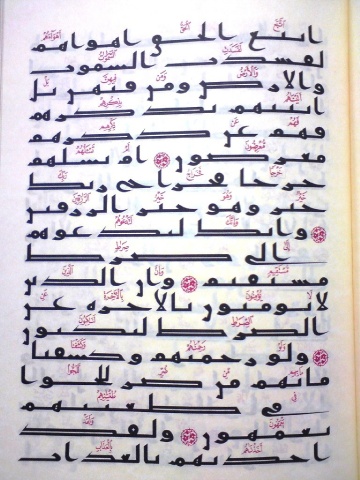 اتبع الحق اهواهم
لفسدت السموت
والارض ومن فيهن بل
اتينهم بذكرهم
فهم عن ذكرهم
معرضون ام تسلهم
خرجا فخراج ربك
خير وهو خير الرزقين
وانك لتدعوهم
الى صرط
مستقيم وان الذين
لا يومنون بالاخره عن
الصرط لنكبون
ولو رحمنهم وكشفنا
ما بهم من ضر للجوا
في طغينهم
يعمهون ولقد
اخذنهم بالعذاب